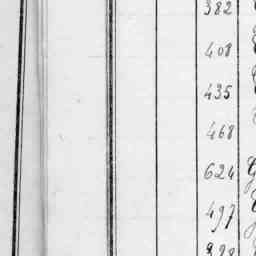 382
408
435
468
624
497
328